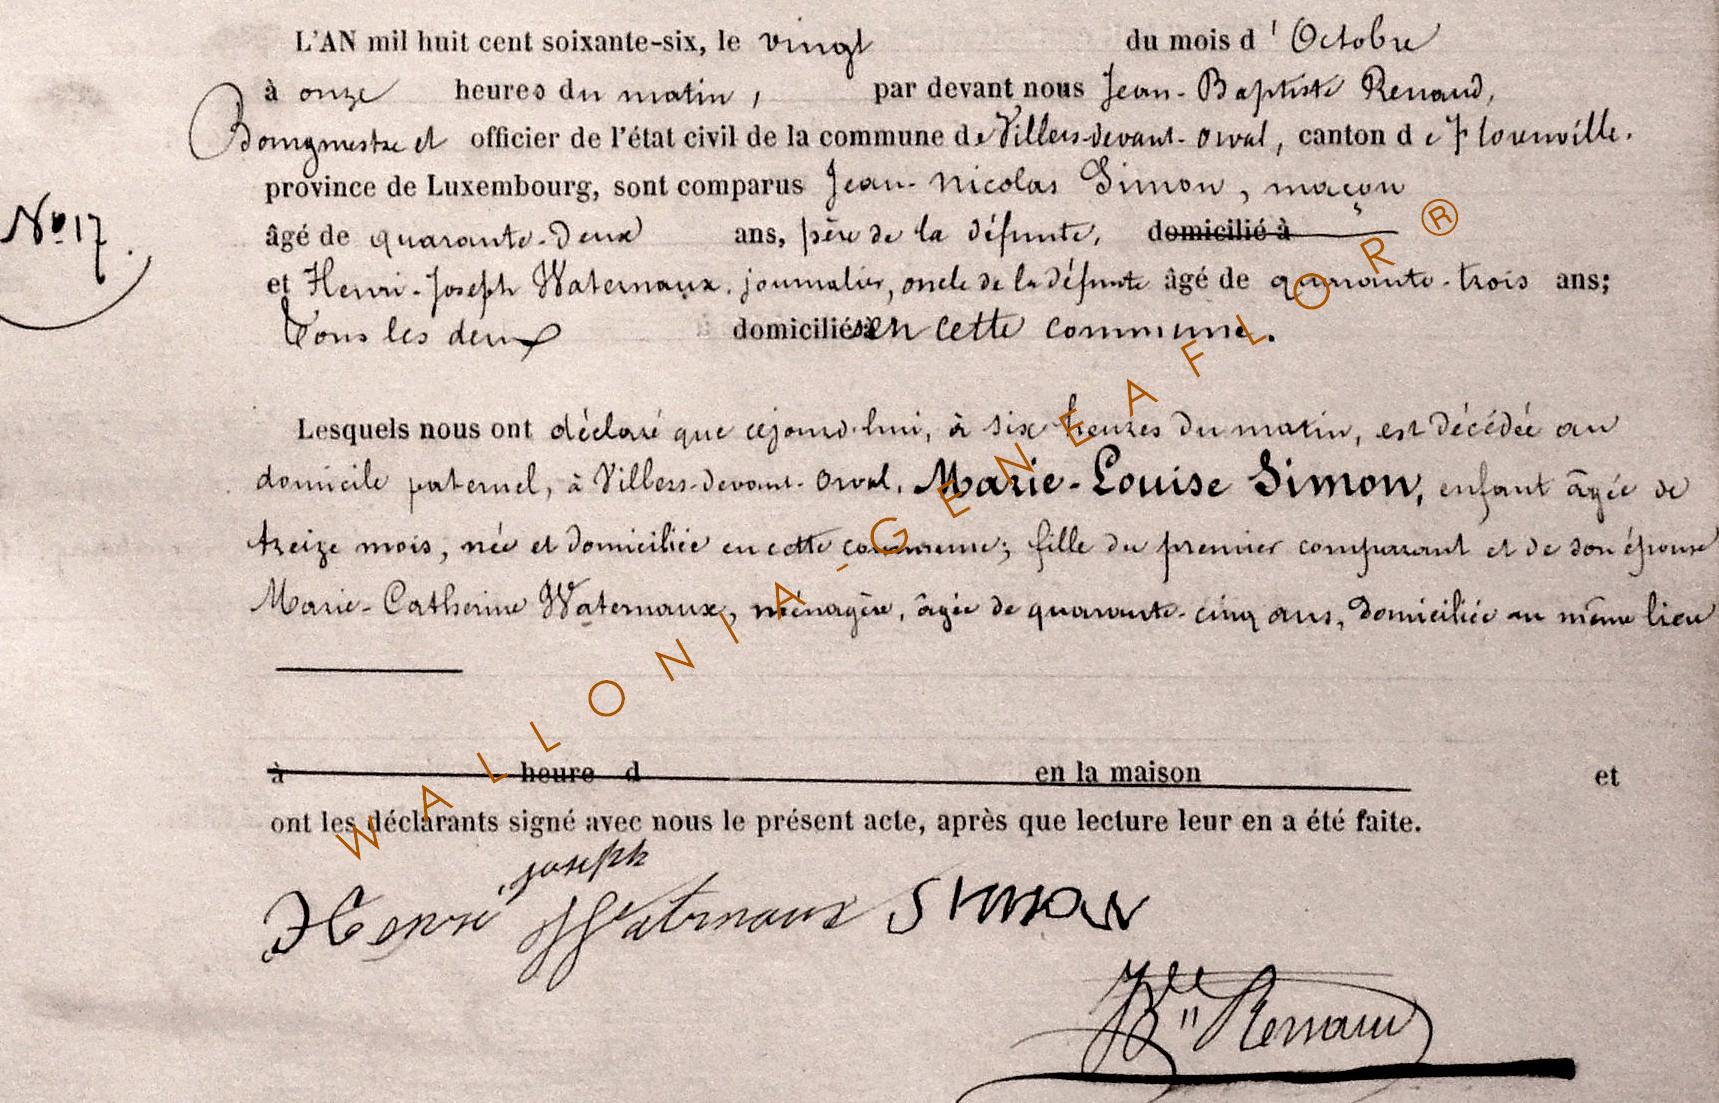 L'AN mil huit cent soixante-six, le vingt du mois d'Octobre
à onze heures du matin, par devant nous Jean-Baptiste Renaud,
Bourgmestre et officier de l'état civil de la commune de Villers-devant-Orval, canton de Florenville.
province de Luxembourg, sont comparus Jean-Nicolas Simon, maçon
N° 17.
âgé de quarante-deux ans, père de la défunte, domicilié à
et Henri-Joseph Waternaux, journalier, oncle de la défunte âgé de quarante-trois ans;
Tous les deux domiciliés en cette commune.
Lesquels nous ont déclaré que cejourd'hui, à six heures du matin, est décédée au
domicile paternel, à Villers-devant-Orval, Marie-Louise Simon, enfant âgée de
treize mois, née et domiciliée en cette commune; fille du premier comparant et de son épouse
Marie-Catherine Waternaux, ménagère, âgée de quarante-cinq ans, domiciliée au même lieu
à heure d en la maison et
ont les déclarants signé avec nous le présent acte, après que lecture leur en a été faite.
joseph
Henri Waternaux Simon
Renaud
WALLONIA-GENEAFLOR®